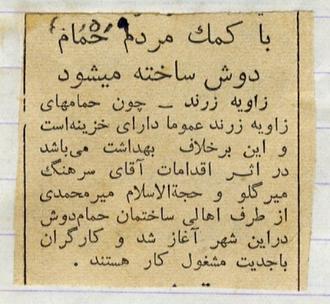 با كمك مردم حمام
دوش ساخته ميشود
زاويه زرند ــ چون حمامهاى
زاويه زرند عموما داراى خزينه‌است
و اين برخلاف بهداشت مى‌باشد
در اثر اقدامات آقاى سرهنگ
ميرگلو و حجةالاسلام ميرمحمدى
از طرف اهالى ساختمان حمام‌دوش
دراين شهر آغاز شد و كارگران
باجديت مشغول كار هستند .